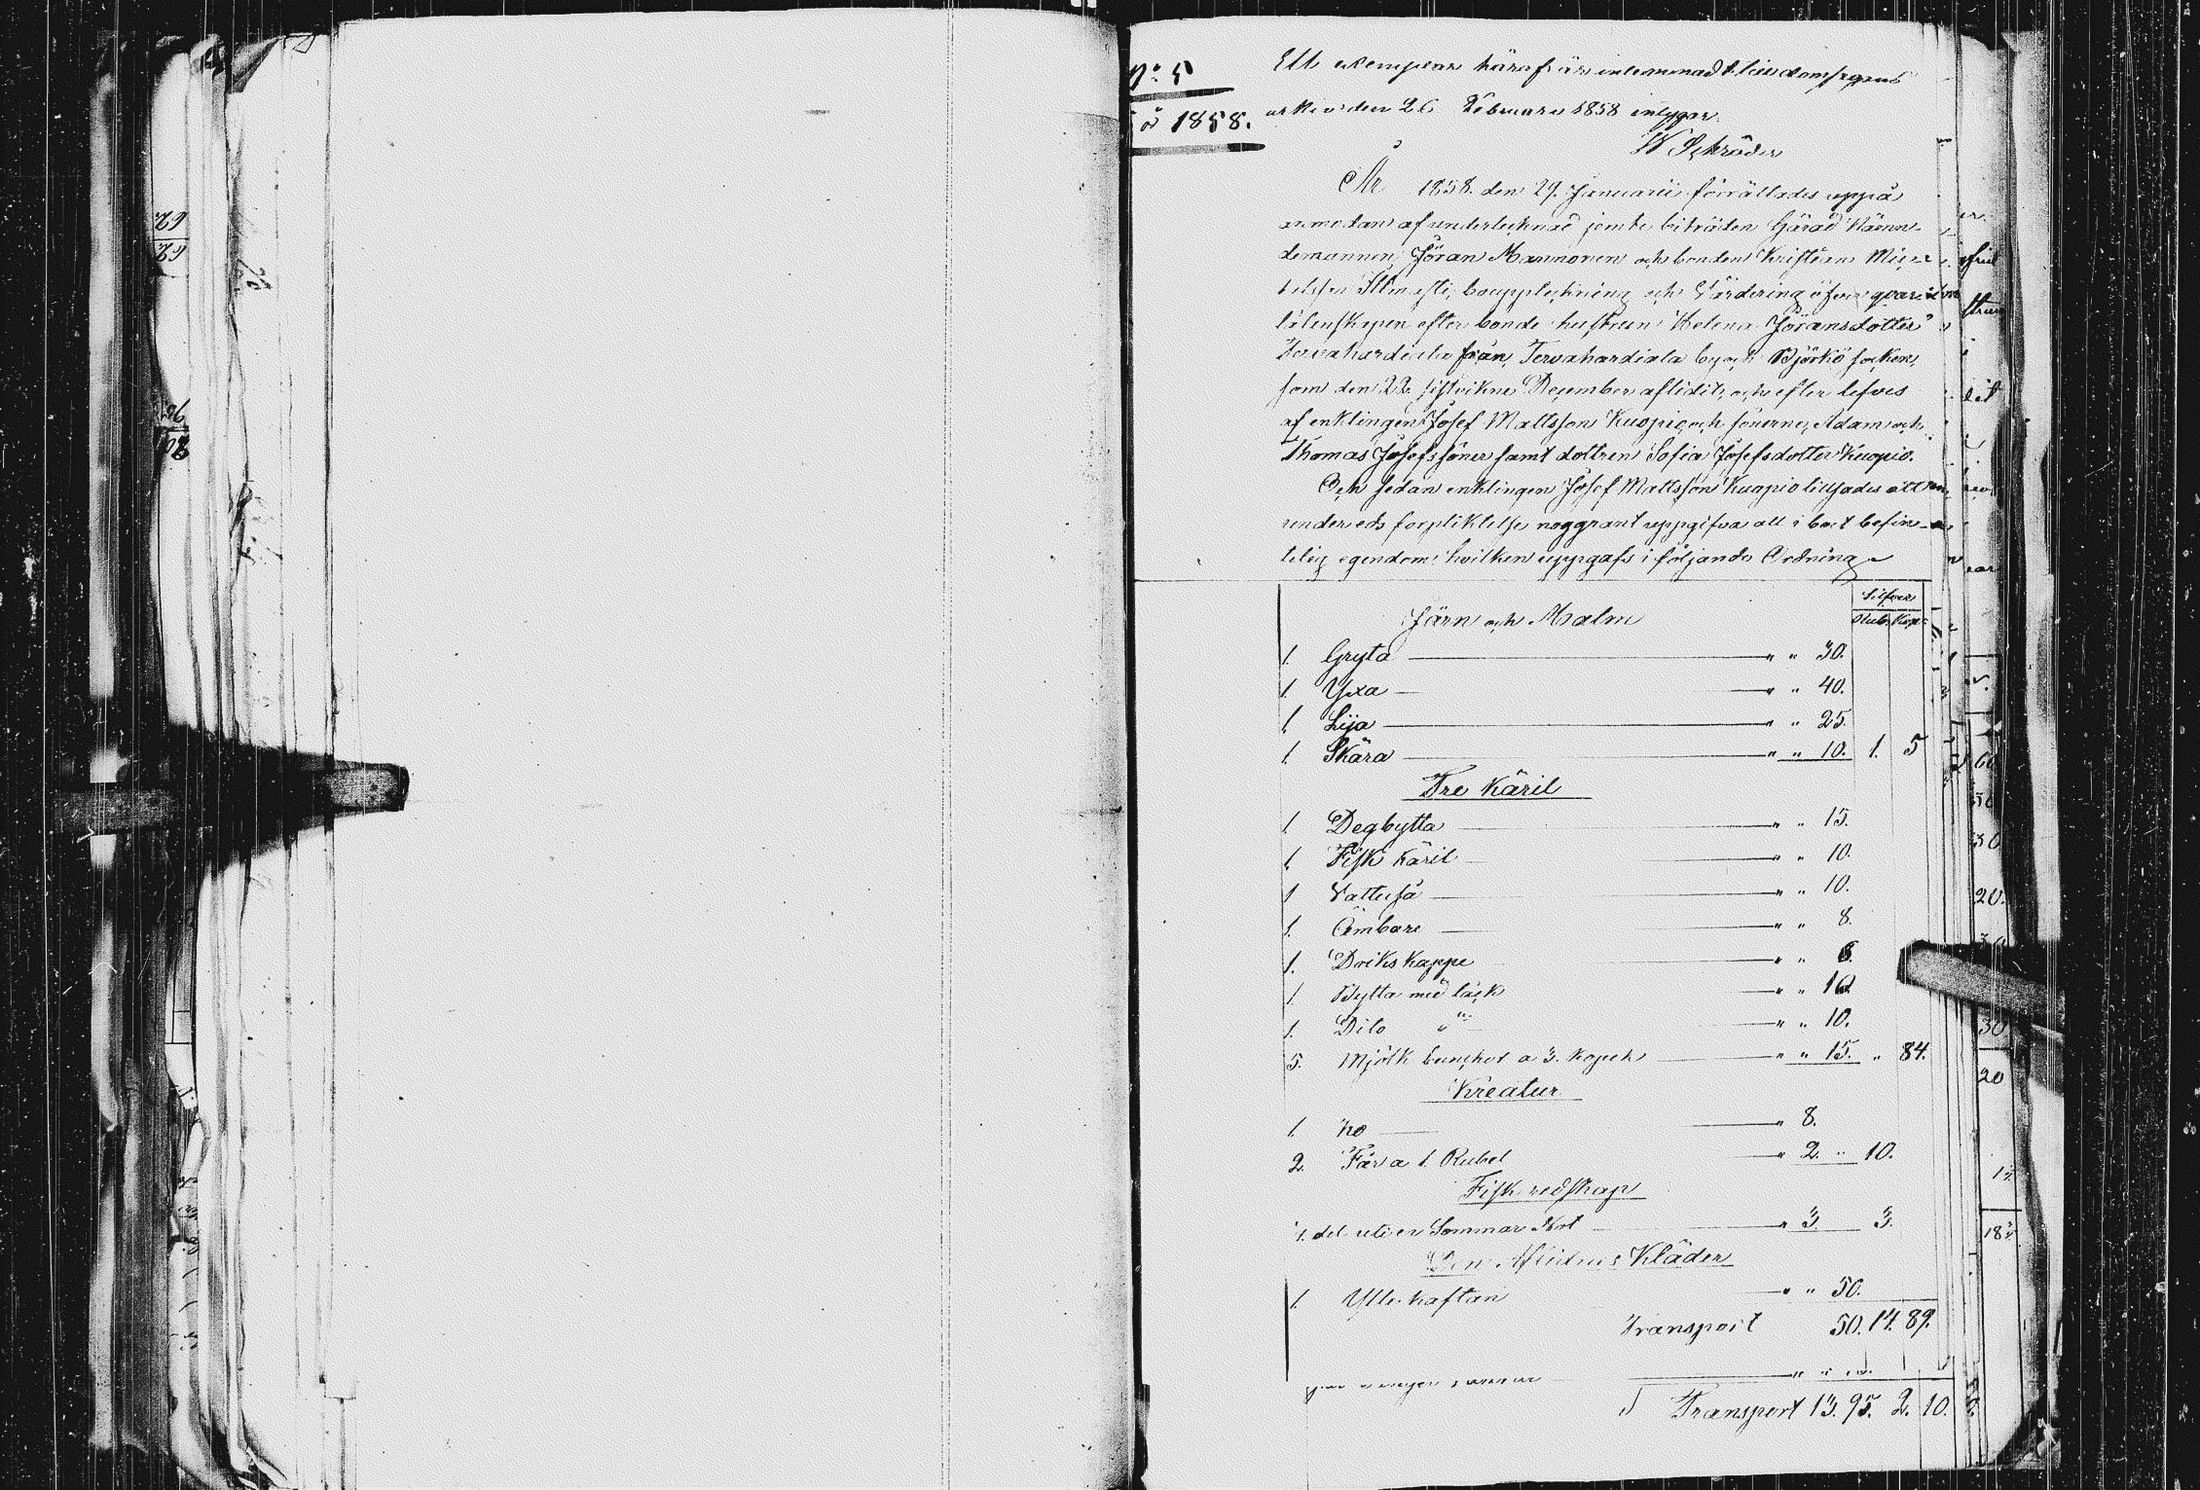 No 5
å 1858.
Ett exemplar häraf är inlemnadt till domsagans
arkiv den 26 Februari 1858 intygar
W Schröder
År 1858 den 29 Januarii förrättades uppå
anmodan af undertecknad jemte biträden Häradt Nämn-
demannen Jöran Mannonen och bonden Kristian
bouppteckning och Värdering öfver qvar-
låtenskapen efter bonde hustrun Helena Jöransdotter
Tervahardiala från Tervahardiala by och Björkö socken,
som den 22 sistvikne December aflidit, och efter lefves
af enklingen Josef Mattsson Kuopio, och sönerne, Adam och
Thomas Josefssöner samt dottren Sofia Josefsdotter Kuopio.
Och sedan enklingen Josef Mattsson Kuopio tillsades att
under eds förpliktelse noggrant uppgifva all i boet befin-
telig egendom, hvilken uppgafs i följande Ordning
Silfver
Rub. Kop.
Järn och Malm
1. Gryta " " 30.
1 Yxa " " 40.
1. Lija " " 25.
1. Skära " " 10. 1. 5
Tre Käril
1 Degbytta " " 15.
1. Fisk käril " " 10.
1 Vattuså " " 10.
1. Ämbare " " 8.
1. Driks kappe " " 6.
1. Bytta med läck " " 10
1. Dito " " " 10.
5. Mjölk bunckar a 3. kopek " " 15. " 84.
Kreatur
1. Ko " 8.
2. Får a 1. Rubel " 2. " 10.
Fisk redskap
1. del uti en Sommar Not " 3. 3.
Den Aflidnes Kläder
1. Ylle kaftan " " 50.
Transport 50. 14. 89.
Transport 13. 95. 2. 10.